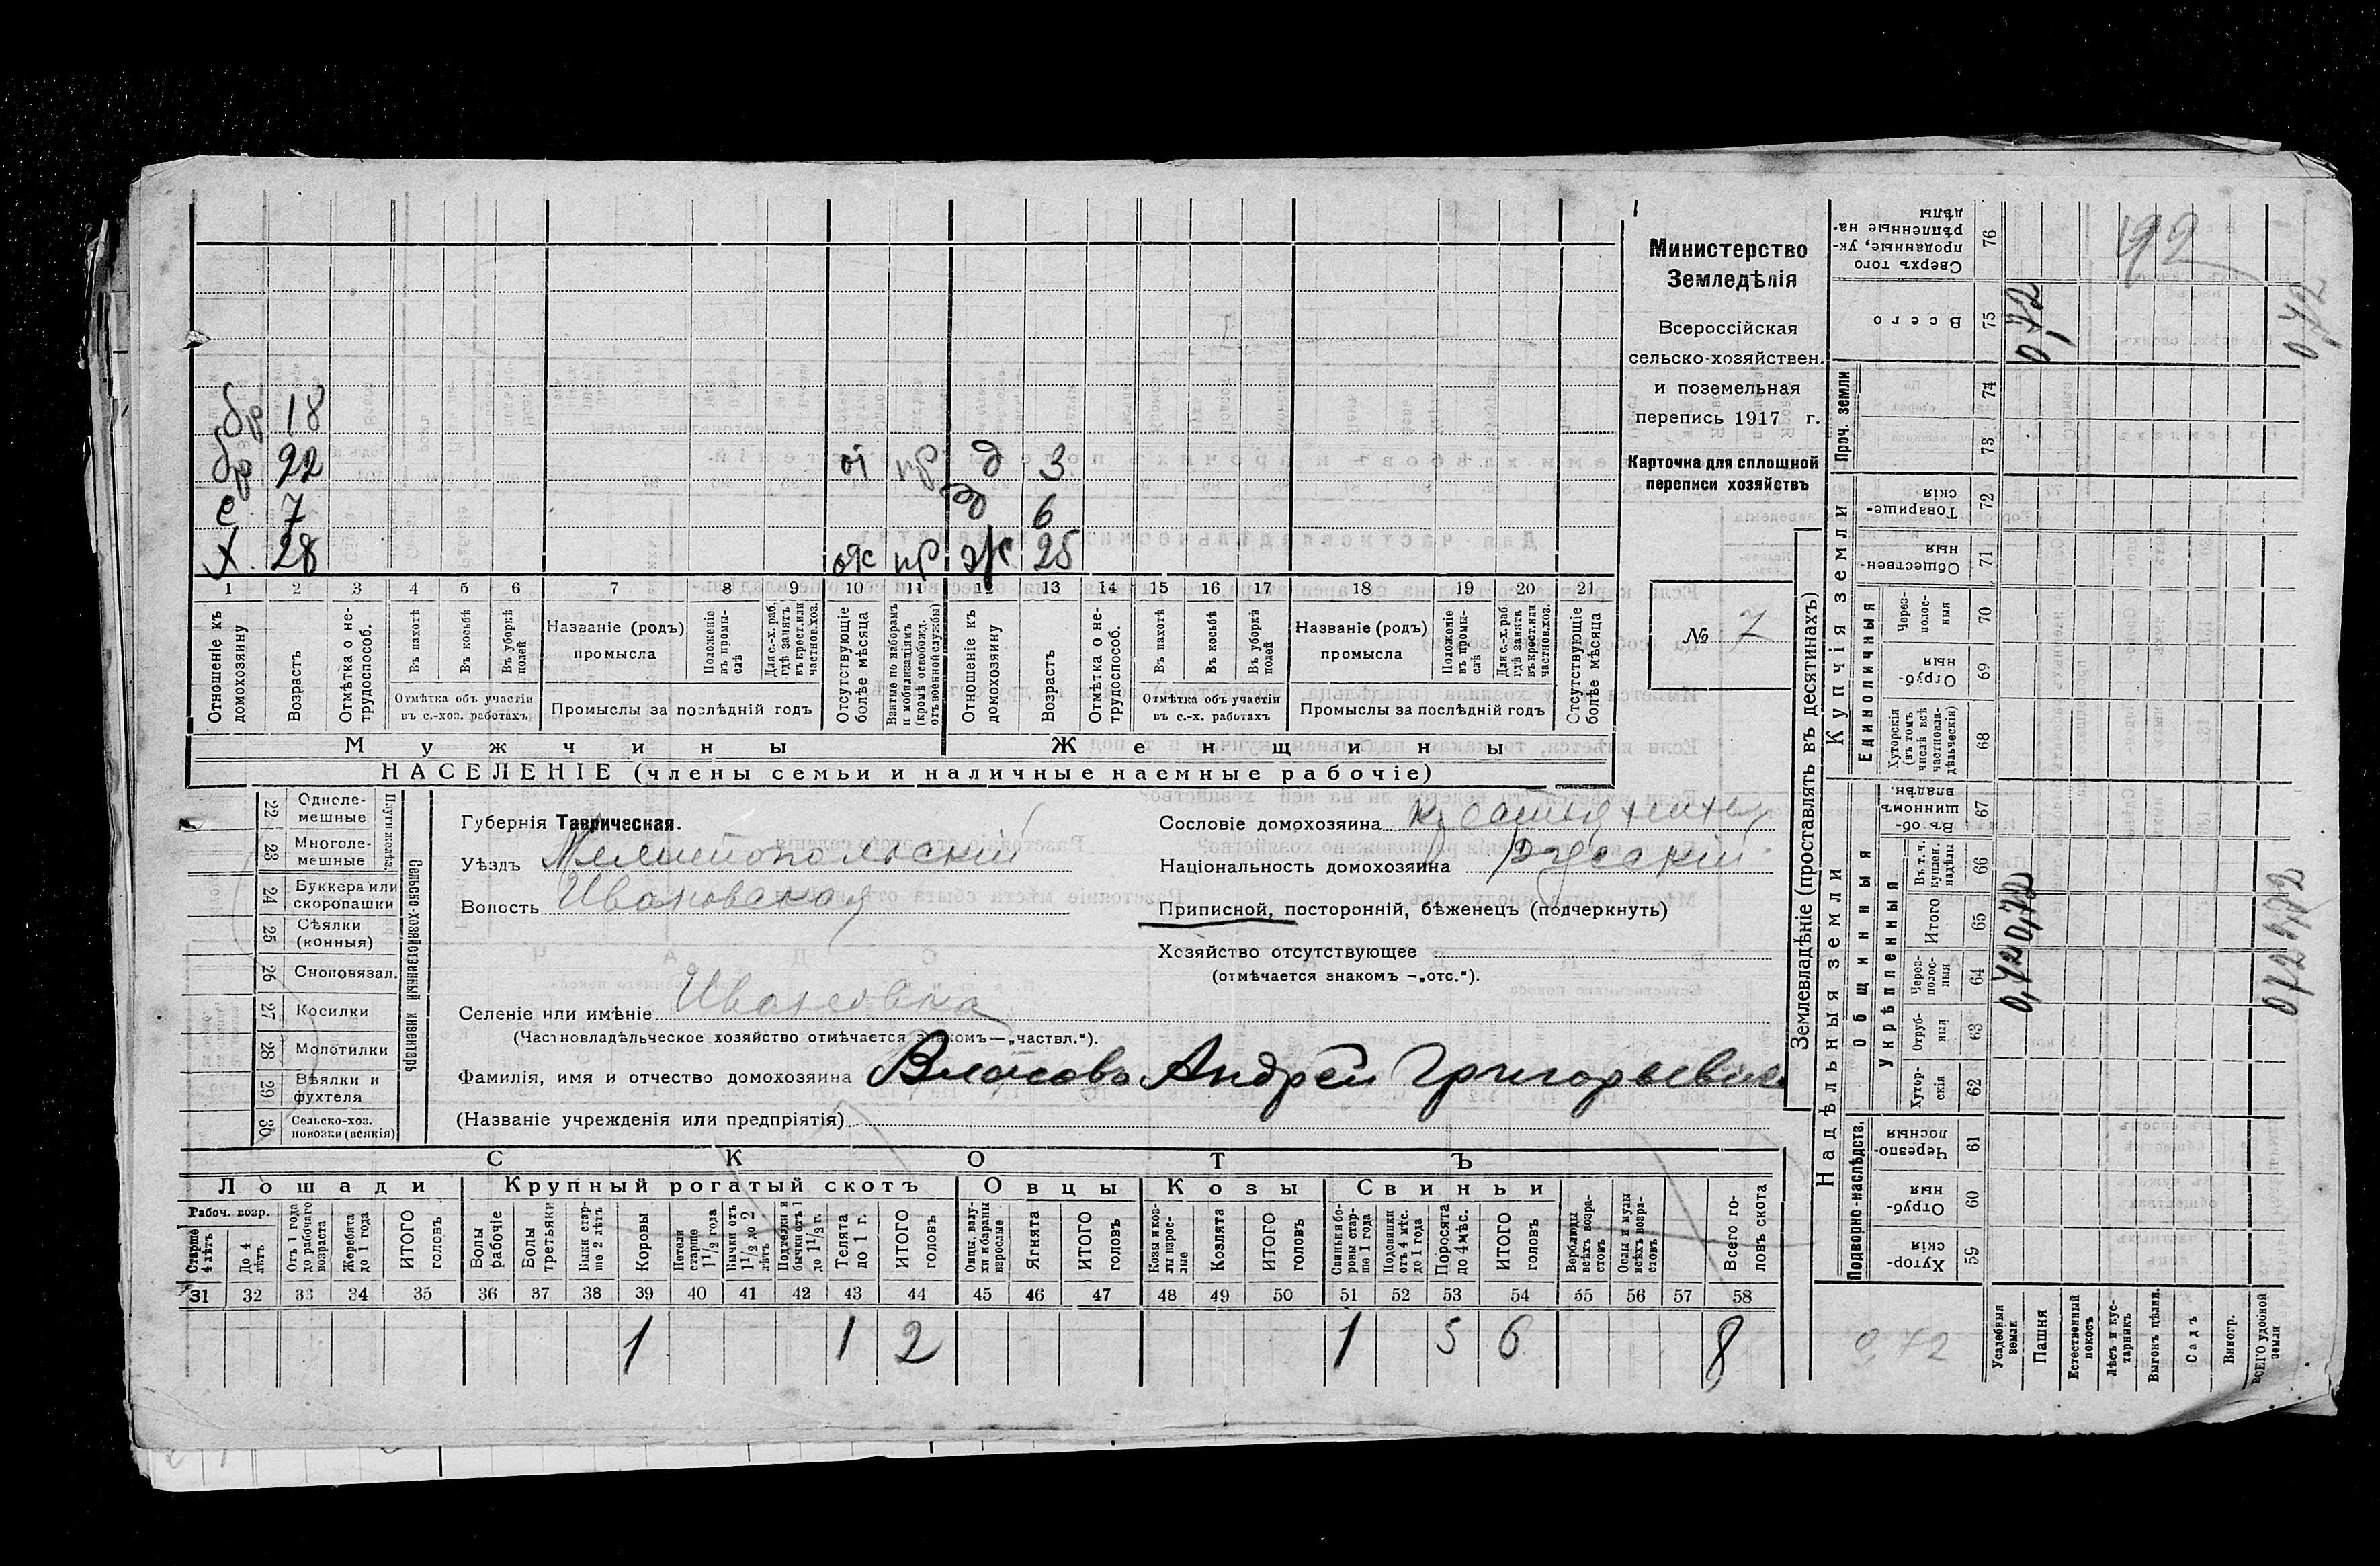 бр 18
бр 22 от пр д 3
с 7 д 6
х. 28 от пр ж 25
1 2 3 4 5 6 7 8 9 10 11 12 13 14 15 16 17 18 19 20 21
Отношеніе къ домохозяину
Возрастъ
Отмѣтка о не-трудоспособ.
Въ пахотѣ
Въ косьбѣ
Въ уборкѣ полей
Отмѣтка объ участіи въ с.-хоз. работахъ
Названіе (родъ) промысла
Положеніе въ промы-слѣ
Для с.-х. раб. гдѣ занятъ въ крест. или частнов. хоз.
Промыслы за послѣдній годъ
Отсутствующіе болѣе мѣсяца
Взятые по наборамъ и мобилизаціямъ (кромѣ освобожд. отъ военной службы)
Отношеніе къ домохозяину
Возрастъ
Отмѣтка о не-трудоспособ.
Въ пахотѣ
Въ косьбѣ
Въ уборкѣ полей
Отмѣтка объ участіи въ с.-х. работахъ
Названіе (родъ) промысла
Положеніе въ промы-слѣ
Для с.-х. раб. гдѣ занята въ крест. или частнов. хоз.
Промыслы за послѣдній годъ
Отсутствующіе болѣе мѣсяца
Мужчины Женщины
НАСЕЛЕНІЕ (члены семьи и наличные наемные рабочіе)
Министерство
Земледѣлія
Всероссійская
сельско-хозяйствен.
и поземельная
перепись 1917 г.
Карточка для сплошной
переписи хозяйствъ
№ 7
22 Одноле-мешные
23 Многоле-мешные
24 Буккера или скоропашки
25 Сѣялки (конныя)
26 Сноповязал.
27 Косилки
28 Молотилки
29 Вѣялки и фухтеля
30 Сельско-хоз. повозки (всякія)
Сельско-хозяйственный инвентарь
Губернія Таврическая.
Уѣздъ Мелитопольскій
Волость Ивановская
Селеніе или имѣніе Ивановка
(Частновладѣльческое хозяйство отмѣчается знакомъ—„частвл.“).
Сословіе домохозяина крестьянинъ
Національность домохозяина Русскій
Приписной, посторонній, бѣженецъ (подчеркнуть)
Хозяйство отсутствующее
(отмѣчается знакомъ -„отс.“).
Фамилія, имя и отчество домохозяина Власовъ Андрей Григорьевичъ
(Названіе учрежденія или предпріятія)
СКОТЪ
Лошади Крупный рогатый скотъ Овцы Козы Свиньи
Рабоч. возр.
Старше 4 лѣтъ
До 4 лѣтъ
Отъ 1 года до рабочаго возраста
Жеребята до 1 года
ИТОГО головъ
Волы рабочіе
Волы третьяки
Быки стар-ше 2 лѣтъ
Коровы
Нетели старше 1 1/2 года
Бычки отъ 1 1/2 до 2 лѣтъ
Подтелки и бычки отъ 1 до 1 1/2 г.
Телята до 1 г.
ИТОГО головъ
Овцы, валу-хи и бараны взрослые
Ягнята
ИТОГО головъ
Козы и коз-лы взрос-лые
Козлята
ИТОГО головъ
Свиньи и бо-ровы стар-ше 1 года
Подсвинки отъ 4 мѣс. до 1 года
Поросята до 4 мѣс.
ИТОГО головъ
Верблюды всѣхъ возра-стовъ
Ослы и мулы всѣхъ возра-стовъ
Всего го-ловъ скота
31 32 33 34 35 36 37 38 39 40 41 42 43 44 45 46 47 48 49 50 51 52 53 54 55 56 57 58
1 1 2 1 5 6 8
Землевладѣніе (проставлять въ десятинахъ)
Надѣльныя земли Купчія земли Проч. земли
Подворно-наслѣдств. Общинныя Единоличныя
Укрѣпленныя
Хутор-скія 59
Отруб-ныя 60
Черезпо-лосныя 61
Хутор-скія 62
Отруб-ныя 63
Через-полос-ныя 64
Итого 65
Въ т. ч. куплен. надѣлы 66
Въ об-щинномъ владѣн. 67
Хуторскія (въ томъ числѣ всѣ частновла-дѣльческія) 68
Отруб-ныя 69
Через-полос-ныя 70
Обществен-ныя 71
Товарище-скія 72
73
74
Всего 75
Сверхъ того проданные, ук-рѣпленные на-дѣлы 76
Усадебныя земли 0,72 0,72 0,72
Пашня
Естественный покосъ
Лѣсъ и кус-тарникъ
Выгонъ цѣлин.
Садъ
Виногр.
ВСЕГО удобной земли 0,72 0,72 0,72
0,72
92